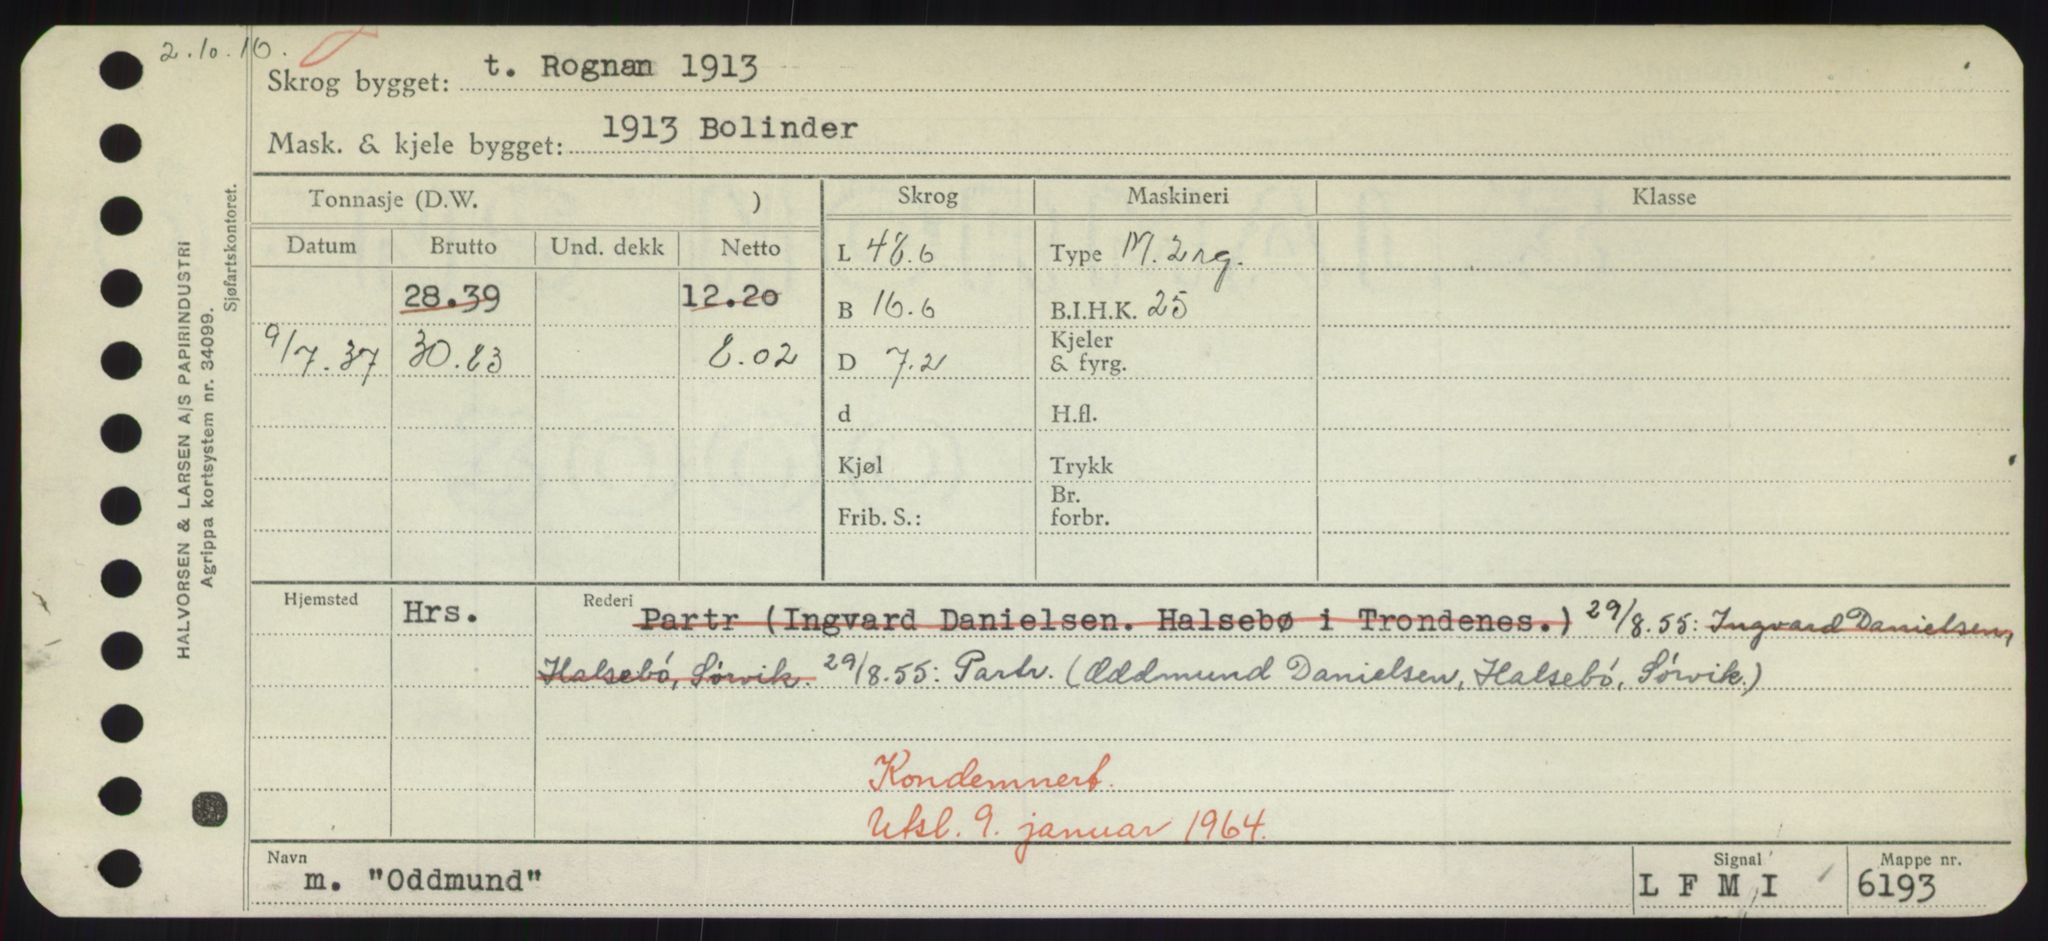 2.10.16.
Skrog bygget: t. Rognan 1913
Mask. & kjele bygget: 1913 Bolinder
Tonnasje (D.W. ) Skrog Maskineri Klasse
Datum Brutto Und. dekk Netto L 48.6 Type M. 2 rg.
28.39 12.20 B 16.6 B.I.H.K. 25
9/7.37 30.83 8.02 D 7.2 Kjeler & fyrg.
d H.fl.
Kjøl Trykk
Frib. S.: Br. forbr.
Hjemsted Hrs. Rederi Partr (Ingvard Danielsen. Halsebø i Trondenes.) 29/8.55: Ingvard Danielsen,
Halsebø, Sørvik. 29/8.55: Partr. (Oddmund Danielsen, Halsebø, Sørvik.)
Kondemnert.
Utsl. 9. januar 1964.
Navn m. "Oddmund" Signal L F M I Mappe nr. 6193
HALVORSEN & LARSEN A/S PAPIRINDUSTRI
Agrippa kortsystem nr. 34099.
Sjøfartskontoret.